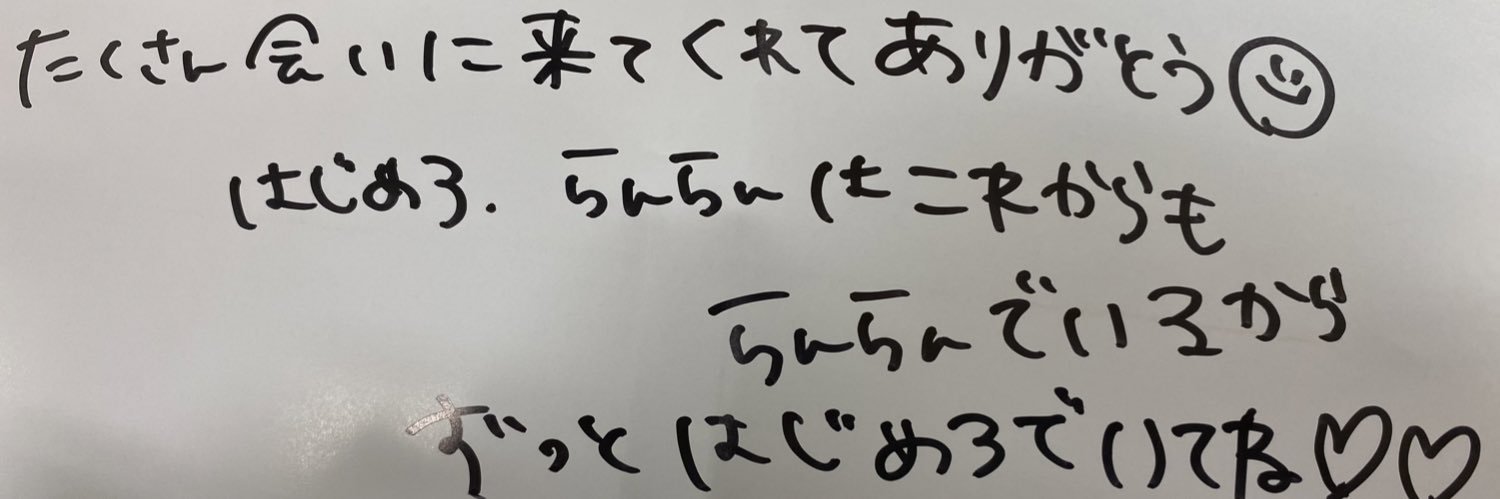 たくさん会いに来てくれてありがとう
はじめろ. らんらんはこれからも
らんらんでいるから
ずっとはじめろでいてね♡♡